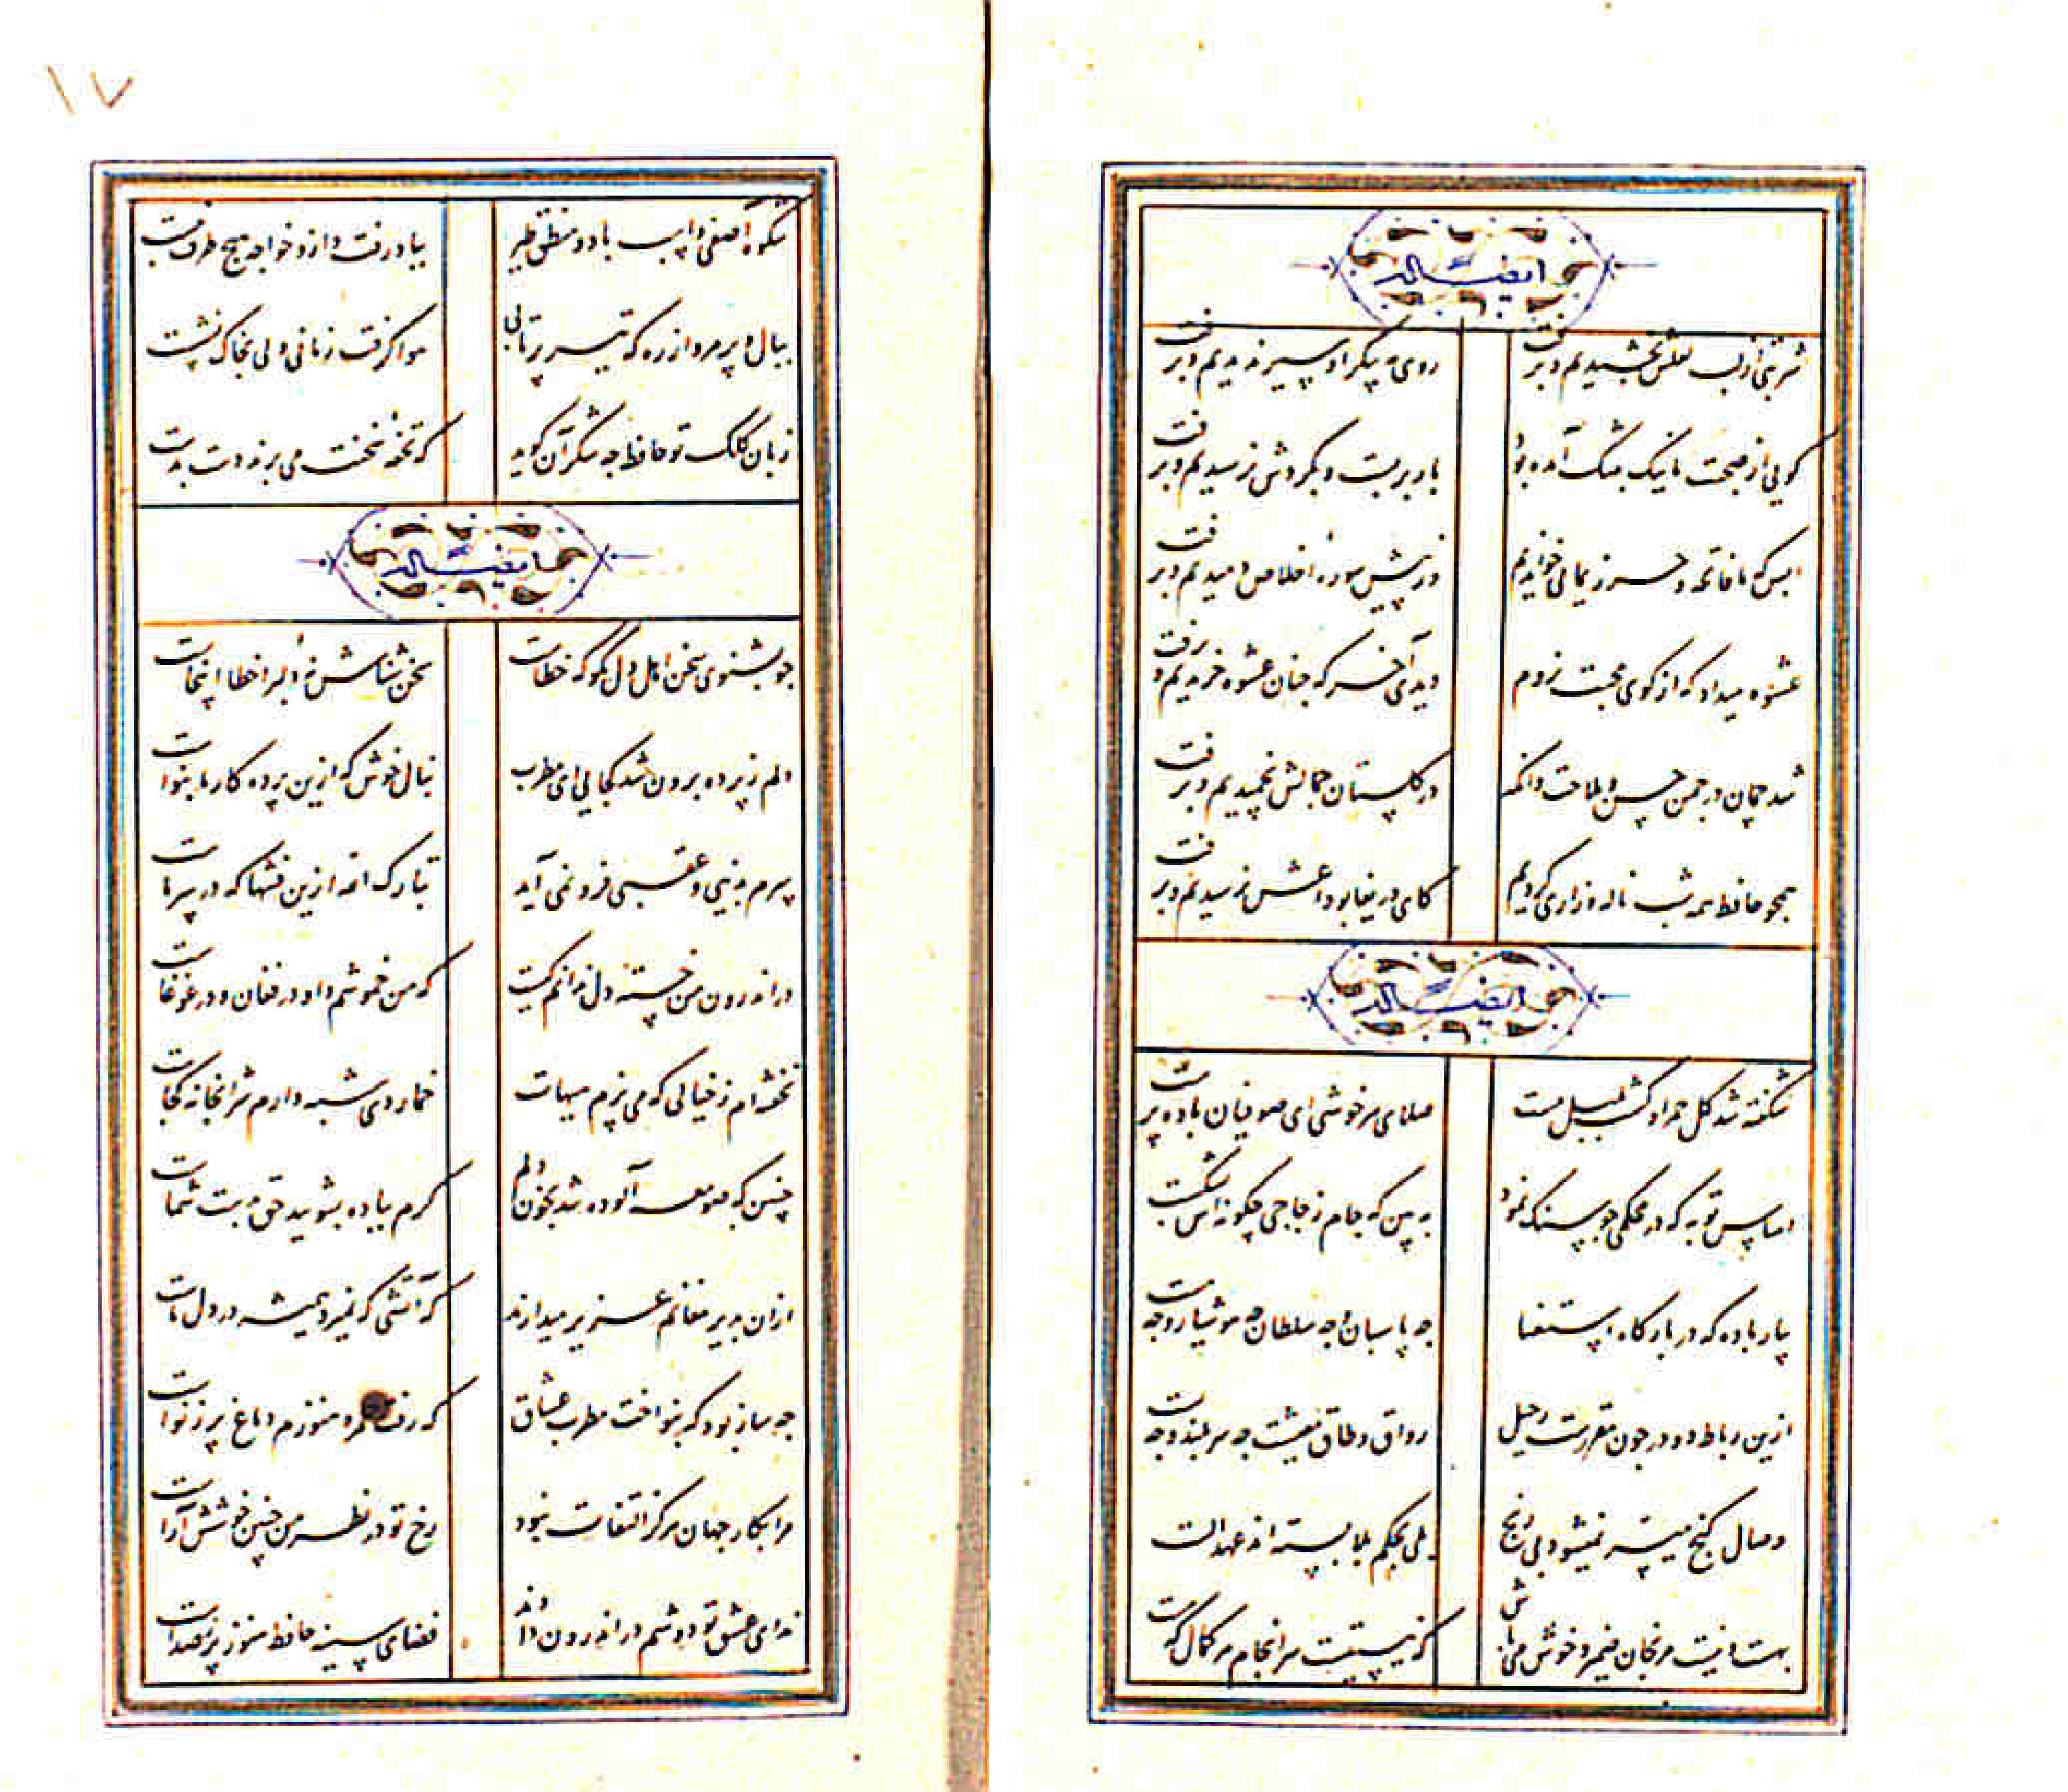 ایضاً له
شربتی از لب لعلش نچشیدیم و برفت
روی مه پیکر او سیر ندیدیم و برفت
کویی از صحبت ما نیک بتنک آمده بود
بار بربست و بکردش نرسیدیم و برفت
بس که ما فاتحه و حرز یمانی خواندیم
وز پیش سوره اخلاص دمیدیم و برفت
عشوه میداد که از کوی محبت نروم
دیدی آخر که چنان عشوه خریدیم و برفت
شد چمان در چمن حسن و ملاحت وانکه
در کلستان جمالش نچمیدیم و برفت
همچو حافظ همه شب ناله و زاری کردیم
کای دریغا بوداعش نرسیدیم و برفت
ایضاً له
شکفته شد کل حمرا و کشت بلبل مست
صلای سرخوشی ای صوفیان باده پرست
اساس توبه که در محکمی جو سنک نمود
به بین که جام زجاجی چکونه اش بشکست
بیار باده که در بارکاه استغنا
جه پاسبان و جه سلطان جه هوشیار و جه مست
ازین رباط دو در جون مقررست رحیل
رواق و طاق معیشت جه سربلند و جه پست
وصال کنج میسر نمیشود بی رنج
بلی بحکم بلا بسته اند عهد الست
بهست و نیست مرنجان ضمیر و خوش می باش
که نیستیست سرانجام هر کمال که هست
۱۷
شکوه آصفی و اسب باد و منطق طیر
بباد رفت و ازو خواجه هیج طرف نبست
ببال و پر مرو از ره که تیر پرتابی
هوا کرفت زمانی ولی بخاک نشست
زبان کلک تو حافظ جه شکر آن کوید
که تحفه سخنت می برند دست بدست
ایضاً له
جو بشنوی سخن اهل دل مکو که خطاست
سخن شناس نه دلبرا خطا اینجاست
دلم ز پرده برون شد کجایی ای مطرب
بنال خوش که ازین پرده کار ما بنواست
سرم بدنیی و عقبی فرو نمی آید
تبارک الله ازین فتنها که در سر ماست
در اندرون من خسته دل ندانم کیست
که من خموشم و او در فغان و در غوغاست
نخفته ام ز خیالی که می پزم هیهات
خمار دی شبه دارم شرابخانه کجاست
چنین که صومعه آلوده شد بخون دلم
کرم بباده بشویید حق بدست شماست
ازان بدیر مغانم عزیز میدارند
که آتشی که نمیرد همیشه در دل ماست
جه ساز بود که بنواخت مطرب عشاق
که رفت عمر و هنوزم دماغ پر ز نواست
مرا بکار جهان هرکز التفات نبود
رخ تو در نظر من چنین خوشش آراست
ندای عشق تو دوشم در اندرون دادند
فضای سینه حافظ هنوز پر ز صداست